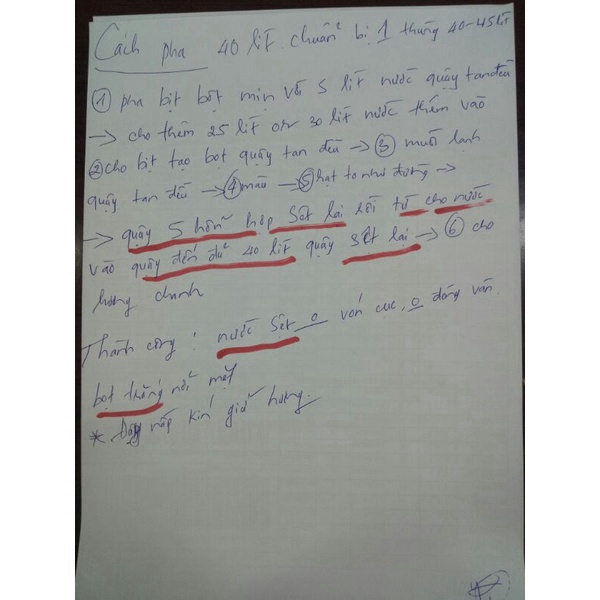 Cách pha 40 lít chuẩn bị 1 thùng 40-45 lít
① pha bịt bột mịn với 5 lít nước quậy tan đều
→ cho thêm 25 lít or 30 lít nước thêm vào
② cho bịt tạo bọt quậy tan đều → ③ muối lạnh
quậy tan đều → ④ màu → ⑤ hạt to như đường →
→ quậy 5 hỗn hợp sệt lại rồi từ cho nước
vào quậy đến đủ 40 lít quậy sệt lại → ⑥ cho
hương chanh
Thành công : nước sệt o vón cục, o đóng ván
bọt trắng nổi mặt
* Đậy nắp kín giữ hương.